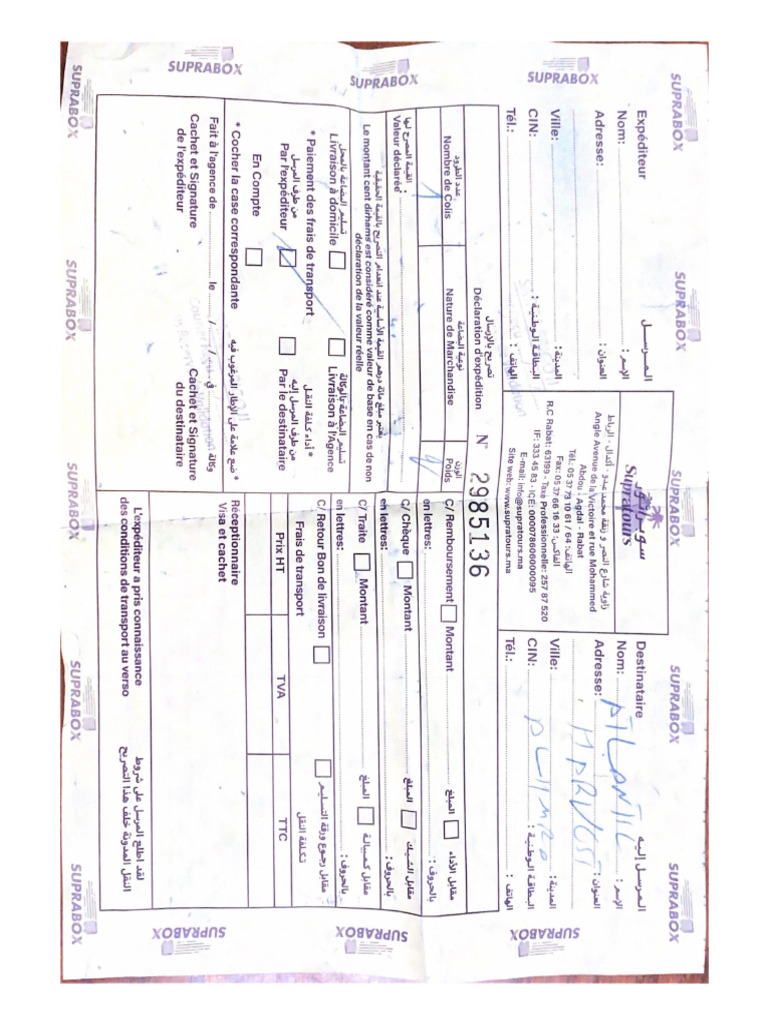 SUPRABOX
SUPRABOX
SUPRABOX
SUPRABOX
SUPRABOX
SUPRABOX
SUPRABOX
Expéditeur المرسل
Nom: الإسم :
Adresse: العنوان :
Ville: المدينة :
CIN: البطاقة الوطنية :
Tél.: الهاتف :
سوبراتور
Supratours
زاوية شارع النصر و زنقة محمد عبدو - أكدال - الرباط
Angle Avenue de la Victoire et rue Mohammed
Abdou - Agdal - Rabat
Tél.: 05 37 73 10 61 / 64 الهاتف:
Fax: 05 37 66 16 33 الفاكس:
R.C Rabat: 63199 - Taxe Professionnelle: 257 87 520
IF: 333 45 83 - ICE: 000078606000095
E-mail: info@supratours.ma
Site web: www.supratours.ma
Destinataire المرسل إليه
Nom: ATLANTIC الإسم :
Adresse: HARVEST العنوان :
Ville: المدينة :
CIN: البطاقة الوطنية :
Tél.: الهاتف :
تصريح بالإرسال
Déclaration d'expédition N° 2985136
عدد الطرود نوعية البضاعة الوزن
Nombre de Colis Nature de Marchandise Poids
1
القيمة المصرح لها :
Valeur déclarée
يعتبر مبلغ مائة درهم القيمة الأساسية عند انعدام التصريح بالقيمة الحقيقية
Le montant cent dirhams est considéré comme valeur de base en cas de non
déclaration de la valeur réelle
تسليم البضاعة بالمحل تسليم البضاعة بالوكالة
Livraison à domicile Livraison à l'Agence
* Paiement des frais de transport أداء كلفة النقل *
من طرف المرسل من طرف المرسل إليه
Par l'expéditeur Par le destinataire
En Compte
* Cocher la case correspondante ضع علامة على الإطار المرغوب فيه *
Fait à l'agence de le / / في وكالة
Cachet et Signature Cachet et Signature
de l'expéditeur du destinataire
C/ Remboursement Montant المبلغ مقابل الأداء
en lettres: بالحروف :
C/ Chèque Montant المبلغ مقابل الشيك
en lettres: بالحروف :
C/ Traite Montant المبلغ مقابل كمبيالة
en lettres: بالحروف :
C/ Retour Bon de livraison مقابل رجوع ورقة التسليم
Frais de transport تكلفة النقل
Prix HT TVA TTC
Réceptionnaire
Visa et cachet
L'expéditeur a pris connaissance لقد اطلع المرسل على شروط
des conditions de transport au verso النقل المدونة خلف هذا التصريح
SUPRABOX
SUPRABOX
SUPRABOX
SUPRABOX
SUPRABOX
SUPRABOX
SUPRABOX
SUPRABOX
SUPRABOX